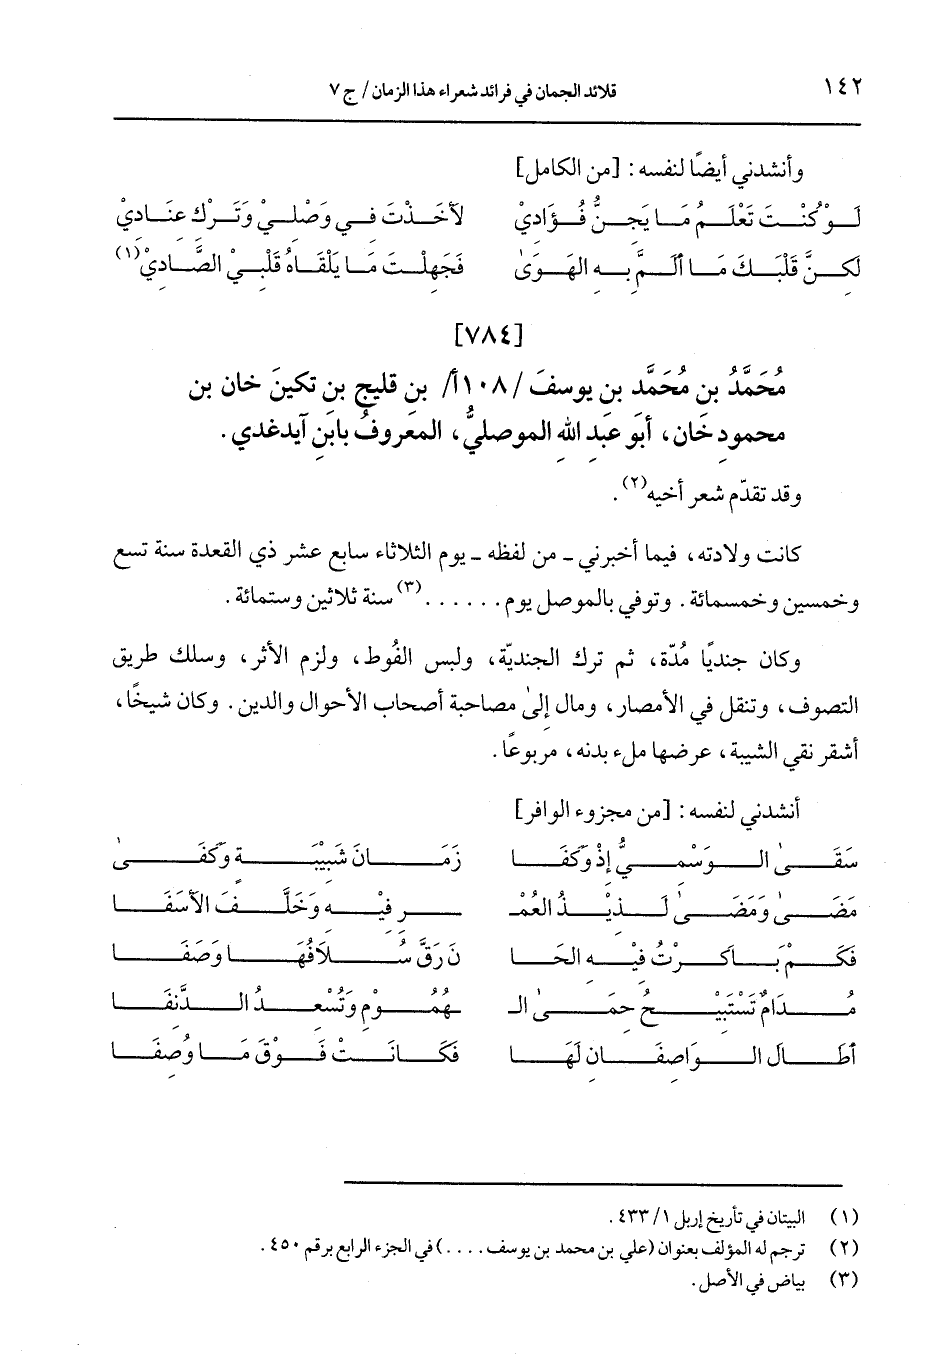 ١٤٢ قلائد الجمان في فرائد شعراء هذا الزمان / ج ٧
وأنشدني أيضًا لنفسه: [من الكامل]
لَوْ كُنْتَ تَعْلَمُ مَا يَجِنُّ فُؤَادِيْ لَأَخَذْتَ فِي وَصْلِيْ وَتَرْكِ عِنَادِيْ
لَكِنَّ قَلْبَكَ مَا أَلَمَّ بِهِ الهَوَىٰ فَجَهِلْتَ مَا يَلْقَاهُ قَلْبِيْ الصَّادِيْ(١)
[٧٨٤]
مُحَمَّدُ بن مُحَمَّدِ بن يوسفَ /١٠٨أ/ بن قليجِ بن تكينَ خان بن
محمودِ خَان، أبو عَبدِ اللهِ الموصليُّ، المعَروفُ بابَنِ آيدغدي.
وقد تقدّم شعر أخيه(٢).
كانت ولادته، فيما أخبرني ـ من لفظه ـ يوم الثلاثاء سابع عشر ذي القعدة سنة تسع
وخمسين وخمسمائة. وتوفي بالموصل يوم ......(٣) سنة ثلاثين وستمائة.
وكان جنديًا مُدّة، ثم ترك الجنديّة، ولبس الفُوط، ولزم الأثر، وسلك طريق
التصوف، وتنقل في الأمصار، ومال إلىٰ مصاحبة أصحاب الأحوال والدين. وكان شيخًا،
أشقر نقي الشيبة، عرضها ملء بدنه، مربوعًا.
أنشدني لنفسه: [من مجزوء الوافر]
سَقَىٰ الوَسْمِيُّ إذْ وَكَفَا زَمَانَ شَبِيْبَةٍ وَكَفَىٰ
مَضَىٰ وَمَضَىٰ لَذِيْذُ العُمْـ ـرِ فِيْهِ وَخَلَّفَ الأَسَفَا
فَكَمْ بَاكَرْتُ فِيْهِ الحَا نَ رَقَّ سُلَافُهَا وَصَفَا
مُدَامٌ تَسْتَبِيْحُ حِمَىٰ الـ ـهُمُوْمِ وَتُسْعِدُ الدَّنِفَا
أَطَالَ الوَاصِفَانِ لَهَا فَكَانَتْ فَوْقَ مَا وُصِفَا
(١) البيتان في تأريخ إربل ١/ ٤٣٣.
(٢) ترجم له المؤلف بعنوان (علي بن محمد بن يوسف ....) في الجزء الرابع برقم ٤٥٠.
(٣) بياض في الأصل.